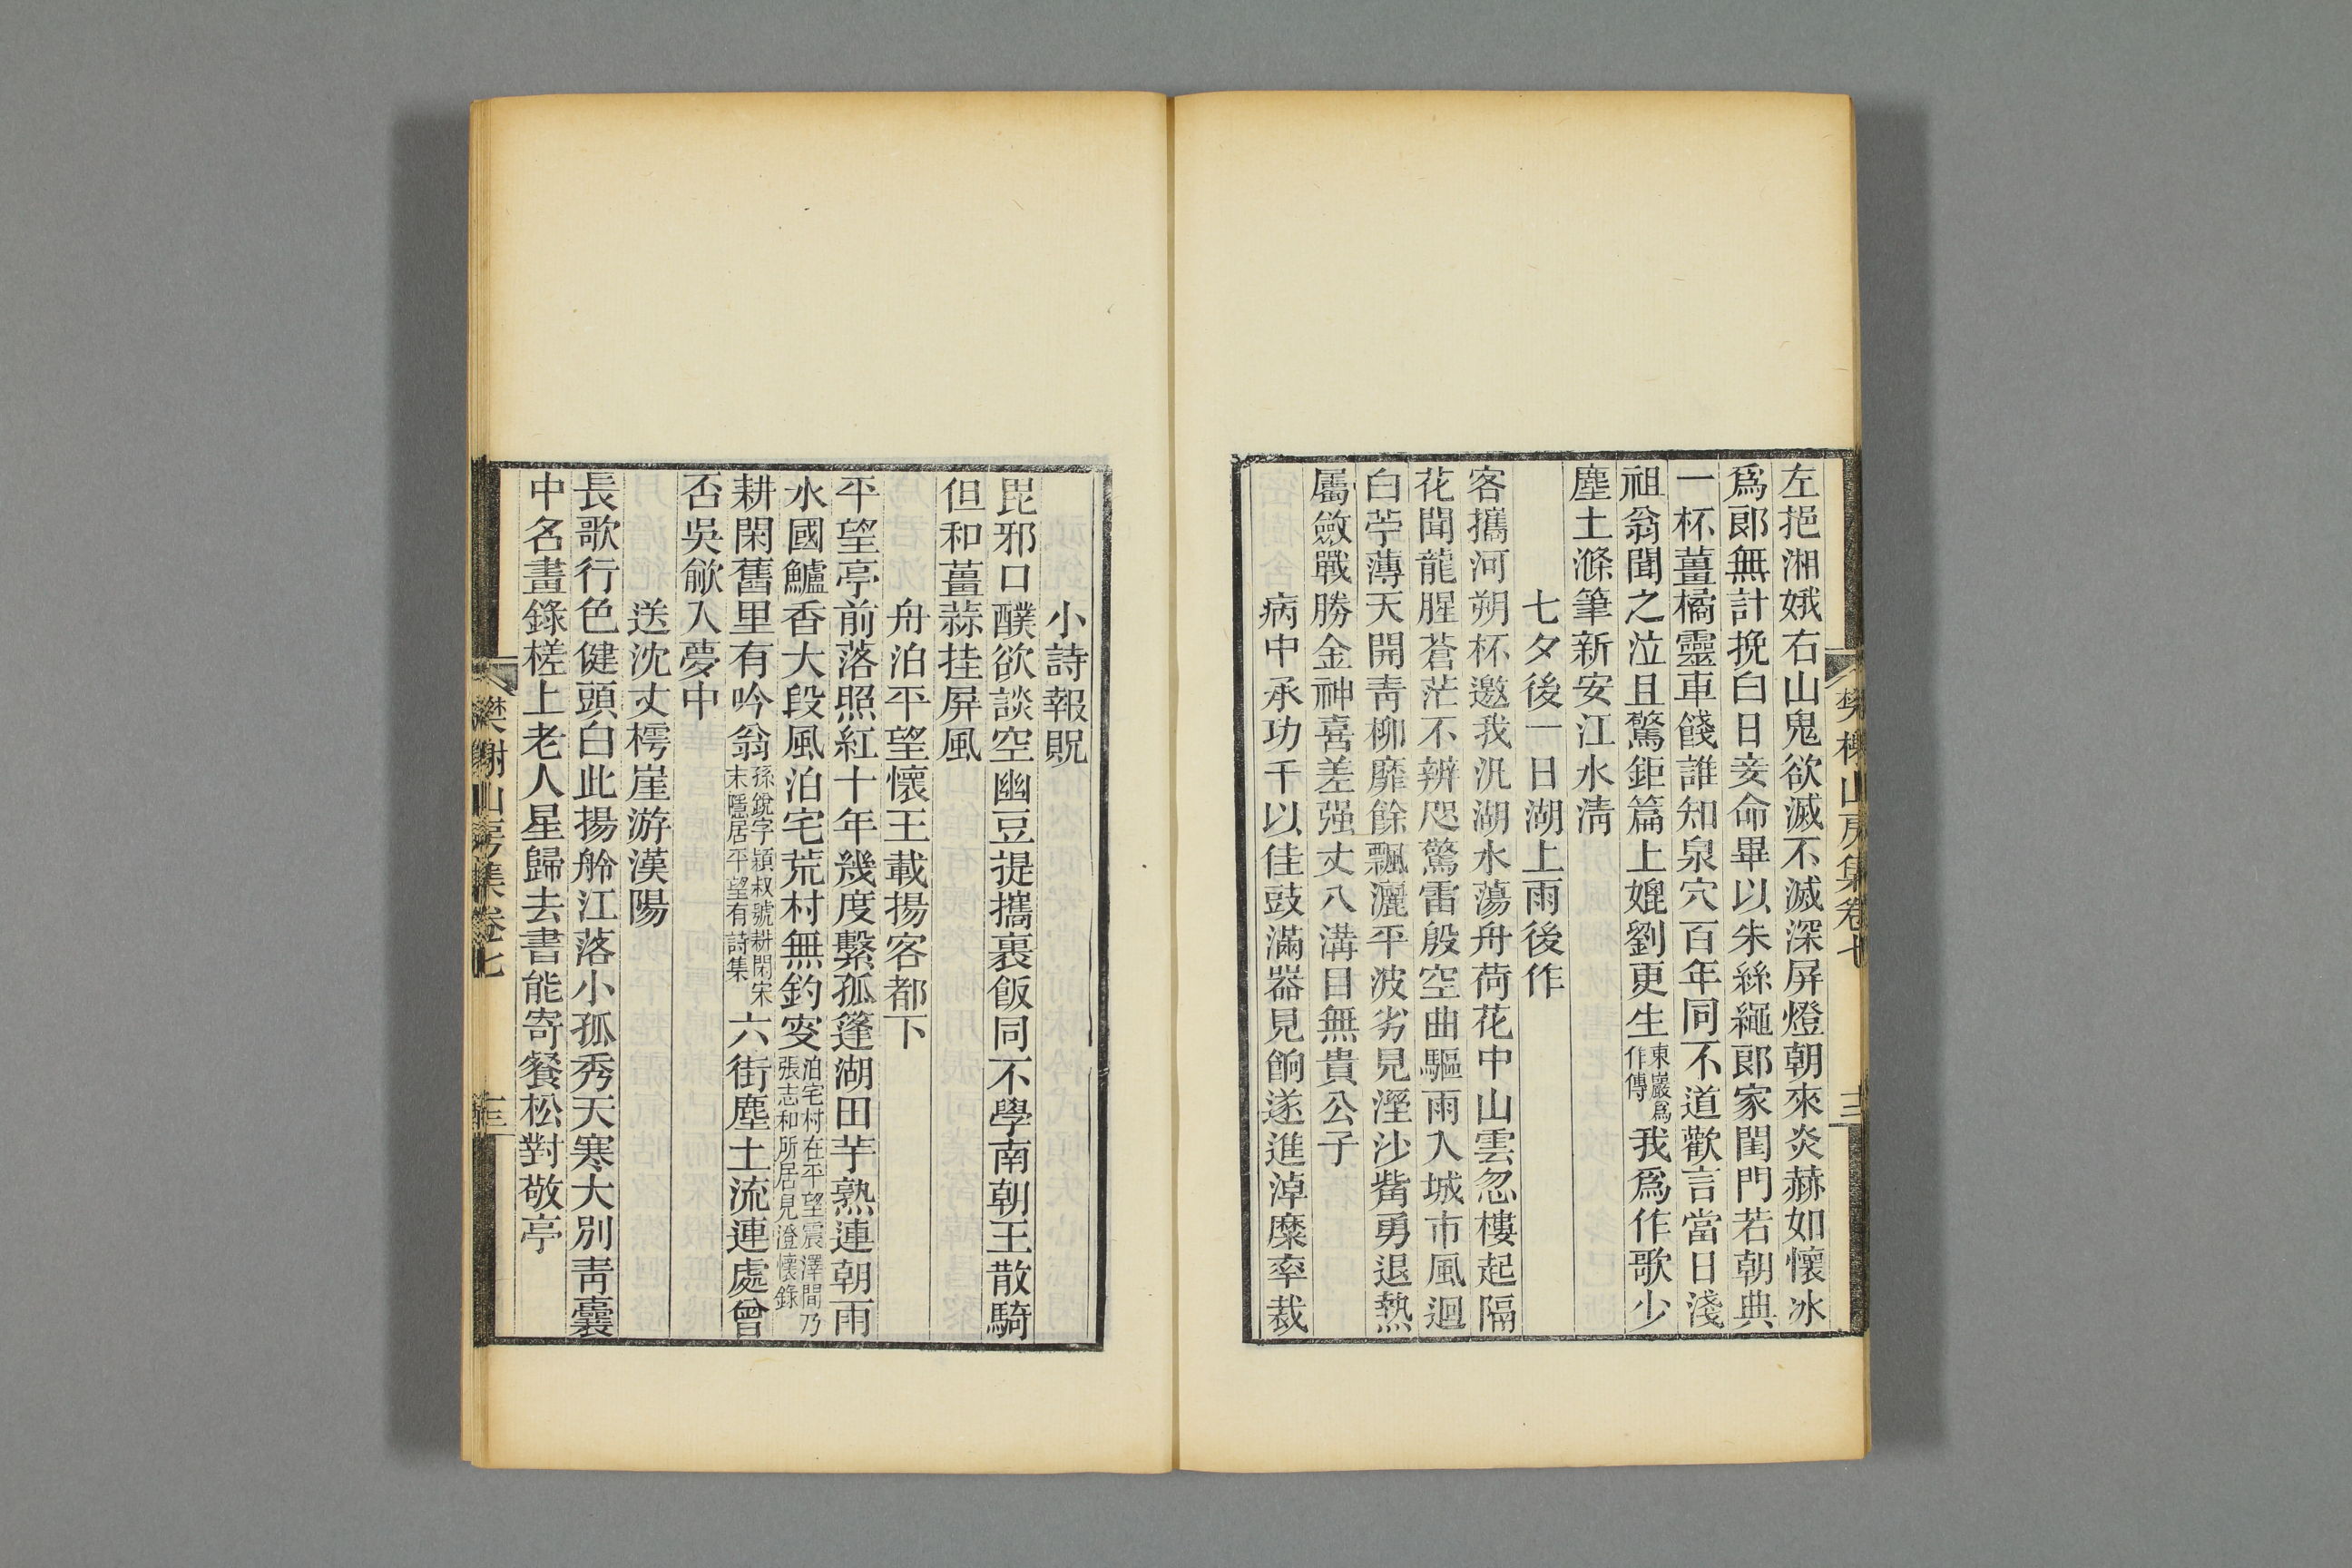 樊榭山房集卷七
左挹湘娥右山鬼欲滅不滅深屏燈朝來炎赫如懷冰
爲郎無計挽白日妾命畢以朱絲繩郎家閨門若朝典
一杯薑橘靈車餞誰知泉穴百年同不道歡言當日淺
祖翁聞之泣且驚鉅篇上媲劉更生東巖爲作傳我爲作歌少
塵土滌筆新安江水清
七夕後一日湖上雨後作
客攜河朔杯邀我汎湖水蕩舟荷花中山雲忽樓起隔
花聞龍腥蒼茫不辨咫驚雷殷空曲驅雨入城市風迴
白苧薄天開靑柳靡餘飄灑平波劣見溼沙觜勇退熱
屬斂戰勝金神喜差强丈八溝目無貴公子
病中承功千以佳豉滿器見餉遂進淖糜率裁
小詩報貺
毘邪口醭欲談空幽豆提攜裹飯同不學南朝王散騎
但和薑蒜挂屏風
舟泊平望懷王載揚客都下
平望亭前落照紅十年幾度繫孤篷湖田芋熟連朝雨
水國鱸香大段風泊宅荒村無釣叜泊宅村在平望震澤間乃張志和所居見澄懷錄
耕閑舊里有吟翁孫銳字穎叔號耕閑宋末隱居平望有詩集六街塵土流連處曾
否吳歈入夢中
送沈丈樗崖游漢陽
長歌行色健頭白此揚舲江落小孤秀天寒大別靑囊
中名畫錄槎上老人星歸去書能寄餐松對敬亭
樊榭山房集卷七